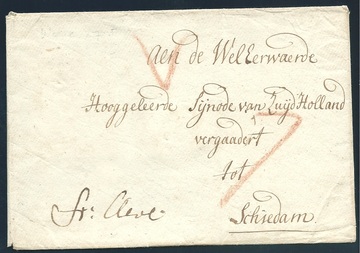 Aen de WelEerwaerde
Hooggeleerde Sijnode van Zuijd Holland
vergaadert
tot
Schiedam.
fr: Cleve